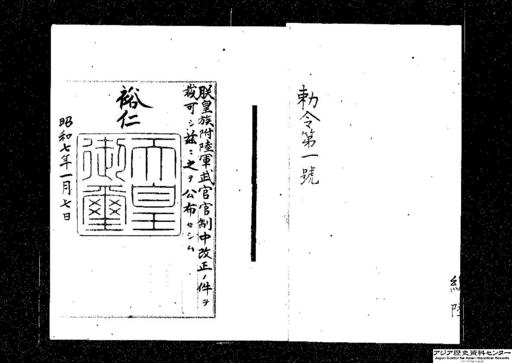 勅令第一號
朕皇族附陸軍武官官制中改正ノ件ヲ
裁可シ茲ニ之ヲ公布セシム
裕仁
天皇
御璽
昭和七年一月七日
アジア歴史資料センター
Japan Center for Asian Historical Records